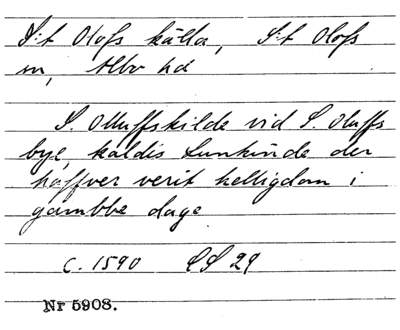 S:t Olofs källa, S:t Olofs
sn, Albo hd
S. Olluffskilde vid S. Oluffs
bye, kaldis Lunkinde der
haffver verit helligdom i
gambbe dage
c. 1590 CS 29
Nr 5908.